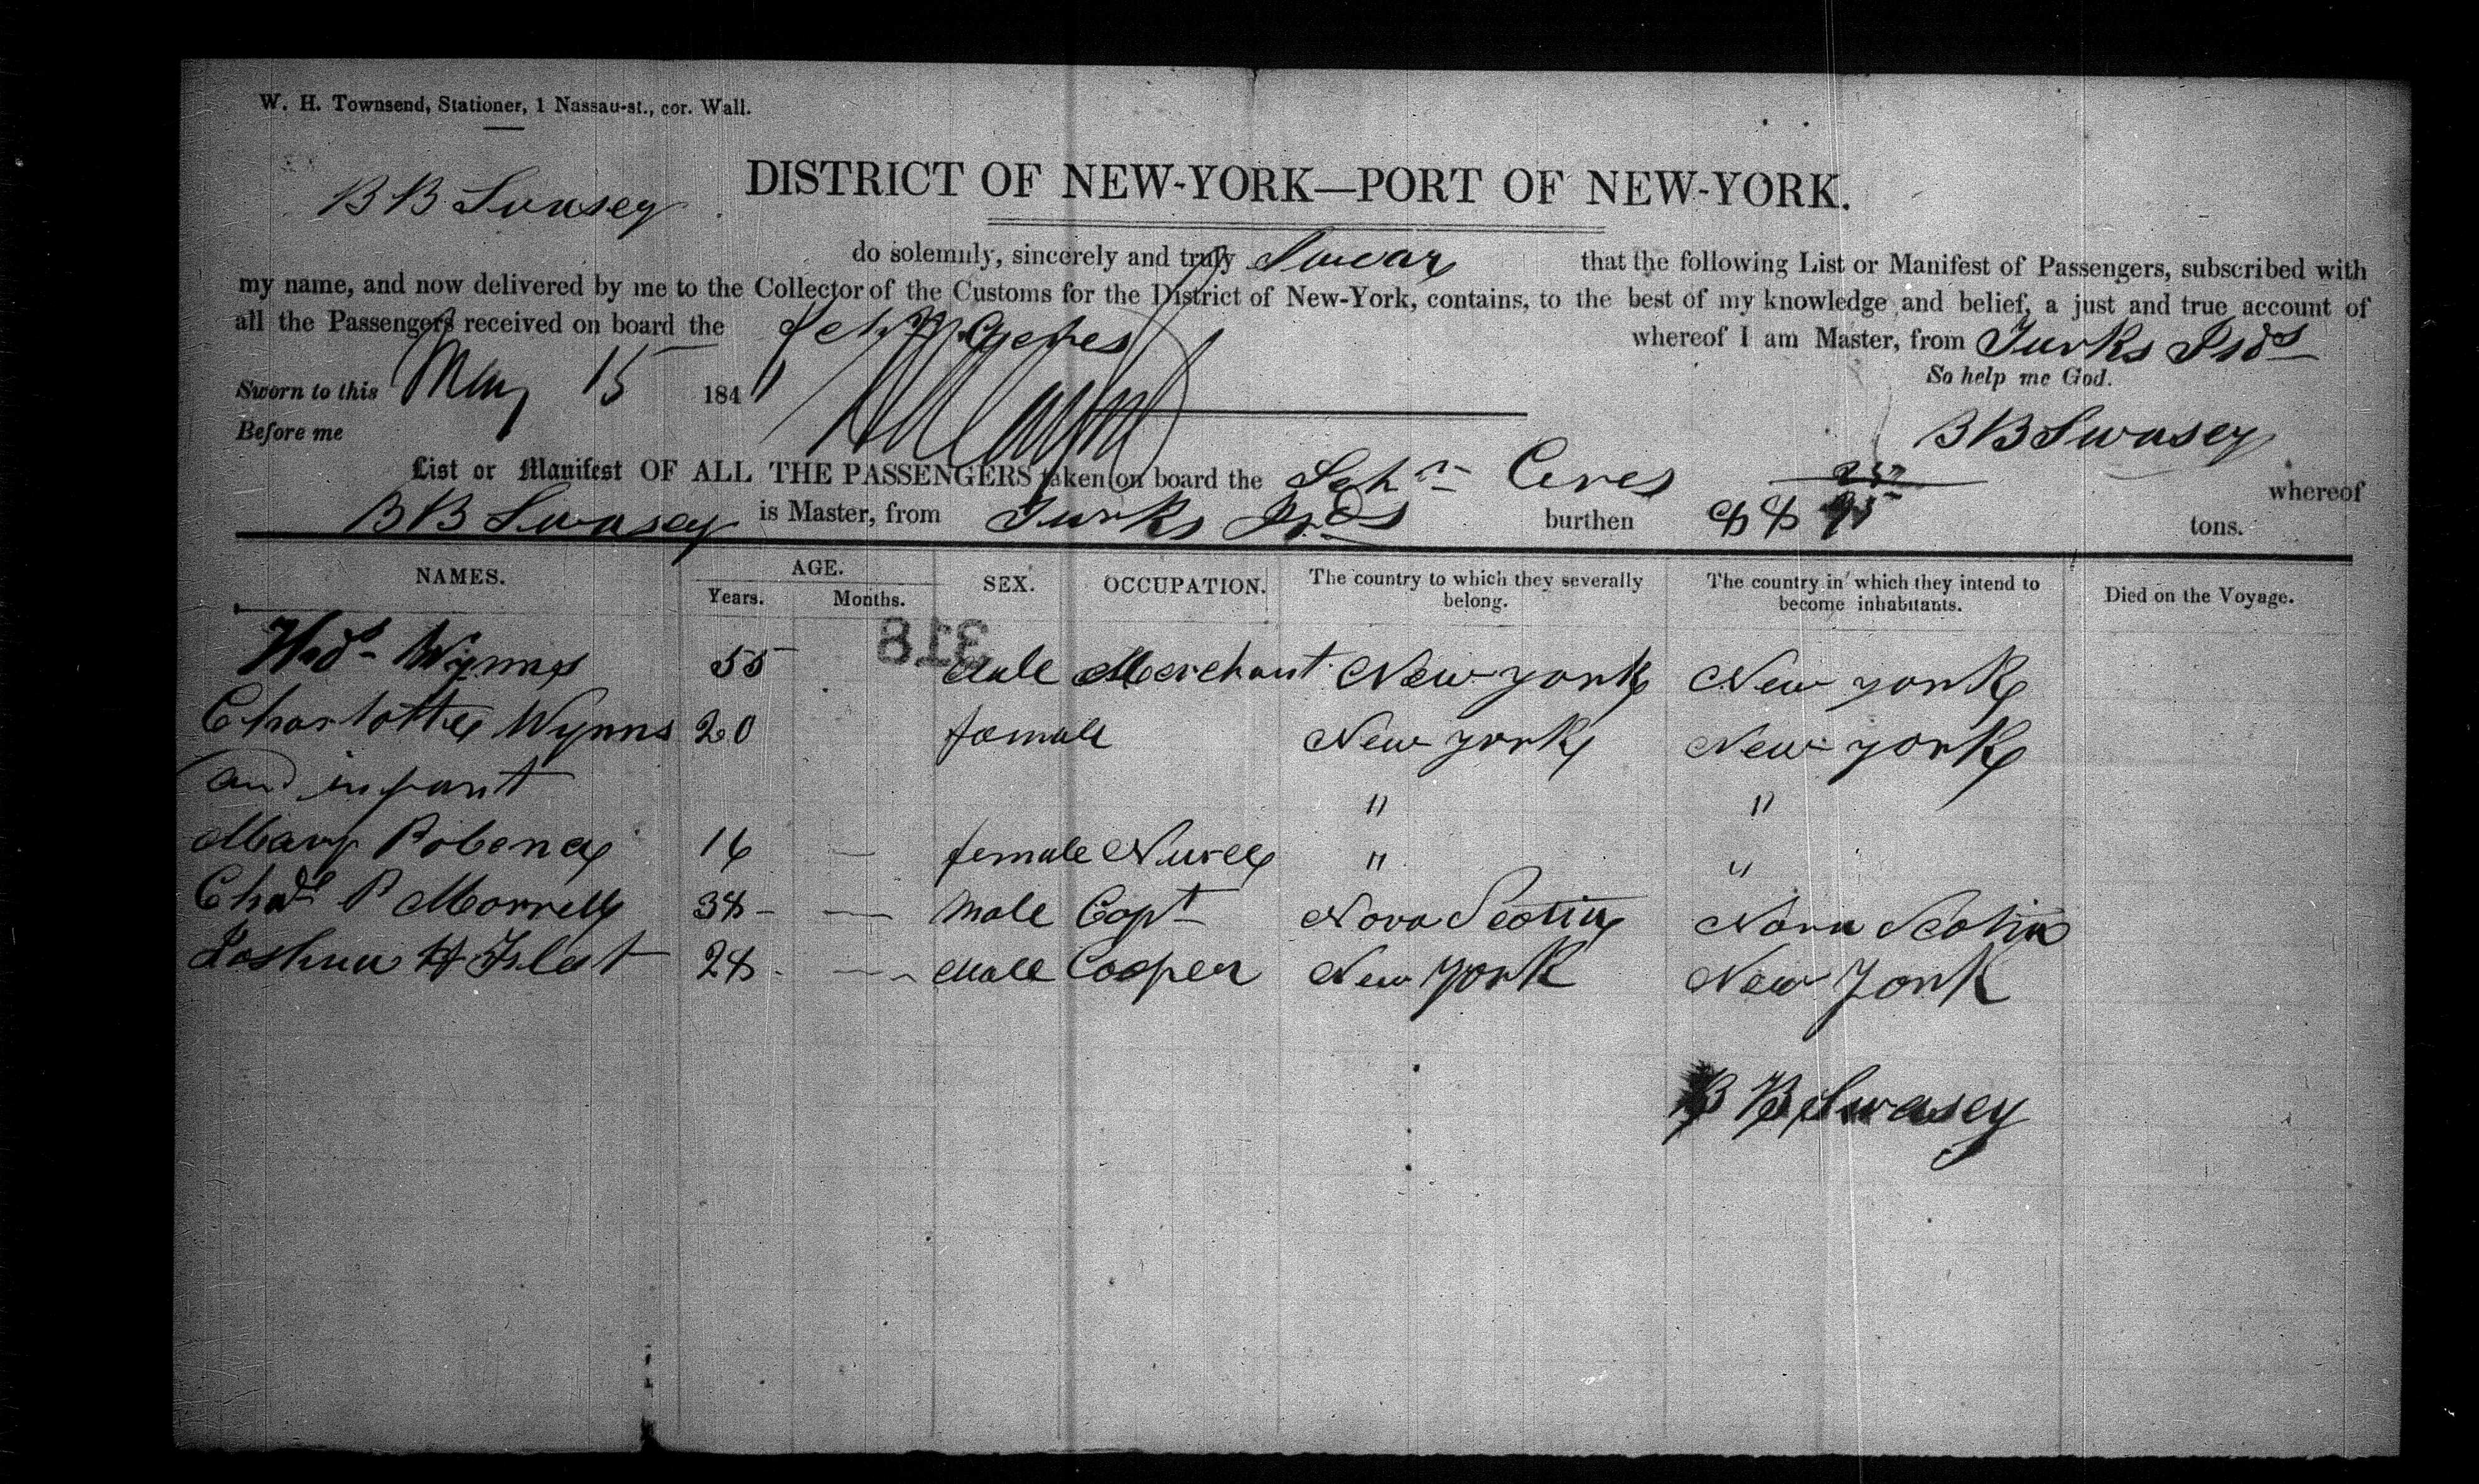 W. H. Townsend, Stationer, 1 Nassau-st., cor. Wall.
DISTRICT OF NEW-YORK—PORT OF NEW-YORK.
B B Swasey
do solemnly, sincerely and truly Swear that the following List or Manifest of Passengers, subscribed with
my name, and now delivered by me to the Collector of the Customs for the District of New-York, contains, to the best of my knowledge and belief, a just and true account of
all the Passengers received on board the Schr Ceres whereof I am Master, from Turks Isds
So help me God.
Sworn to this May 15 1841
Before me
B B Swasey
List or Manifest OF ALL THE PASSENGERS taken on board the Schr Ceres whereof
B B Swasey is Master, from Turks Isds burthen 88 tons.
NAMES. AGE. SEX. OCCUPATION. The country to which they severally belong. The country in which they intend to become inhabitants. Died on the Voyage.
Years. Months.
318
Wynns 55 Male Merchant New york New york
Charlotte Wynns 20 female New york New york
and infant " "
Mary 16 — female Nurse " "
Chas P Morrell 38 - — Male Capt Nova Scotia Nova Scotia
Joshua H 28 - — Male Cooper New York New York
B B Swasey